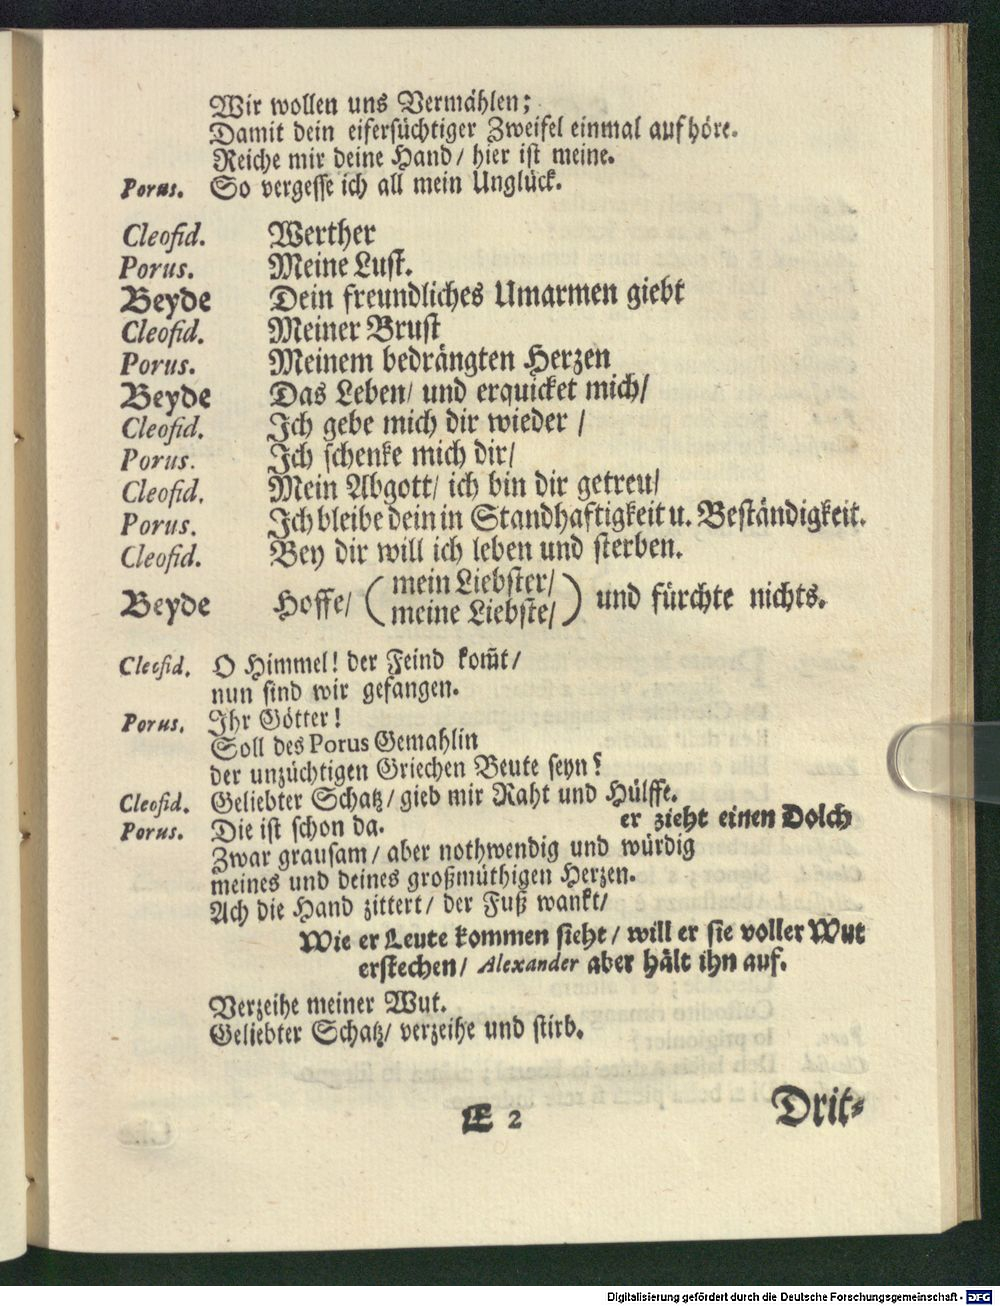 Wir wollen uns Vermählen;
Damit dein eifersüchtiger Zweifel einmal aufhöre.
Reiche mir deine Hand/ hier ist meine.
Porus. So vergesse ich all mein Unglück.
Cleofid. Werther
Porus. Meine Lust.
Beyde Dein freundliches Umarmen giebt
Cleofid. Meiner Brust
Porus. Meinem bedrängten Herzen
Beyde Das Leben/ und erquicket mich/
Cleofid. Ich gebe mich dir wieder /
Porus. Ich schenke mich dir/
Cleofid. Mein Abgott/ ich bin dir getreu/
Porus. Ich bleibe dein in Standhaftigkeit u. Beständigkeit.
Cleofid. Bey dir will ich leben und sterben.
Beyde Hoffe/ ( mein Liebster/
meine Liebste/ ) und fürchte nichts.
Cleofid. O Himmel! der Feind kom̃t/
nun sind wir gefangen.
Porus. Ihr Götter!
Soll des Porus Gemahlin
der unzüchtigen Griechen Beute seyn?
Cleofid. Geliebter Schatz/ gieb mir Raht und Hülffe.
Porus. Die ist schon da. er zieht einen Dolch
Zwar grausam/ aber nothwendig und würdig
meines und deines großmüthigen Herzen.
Ach die Hand zittert/ der Fuß wankt/
Wie er Leute kommen sieht/ will er sie voller Wut
erstechen/ Alexander aber hält ihn auf.
Verzeihe meiner Wut.
Geliebter Schatz/ verzeihe und stirb.
E 2
Drit-
Digitalisierung gefördert durch die Deutsche Forschungsgemeinschaft - DFG